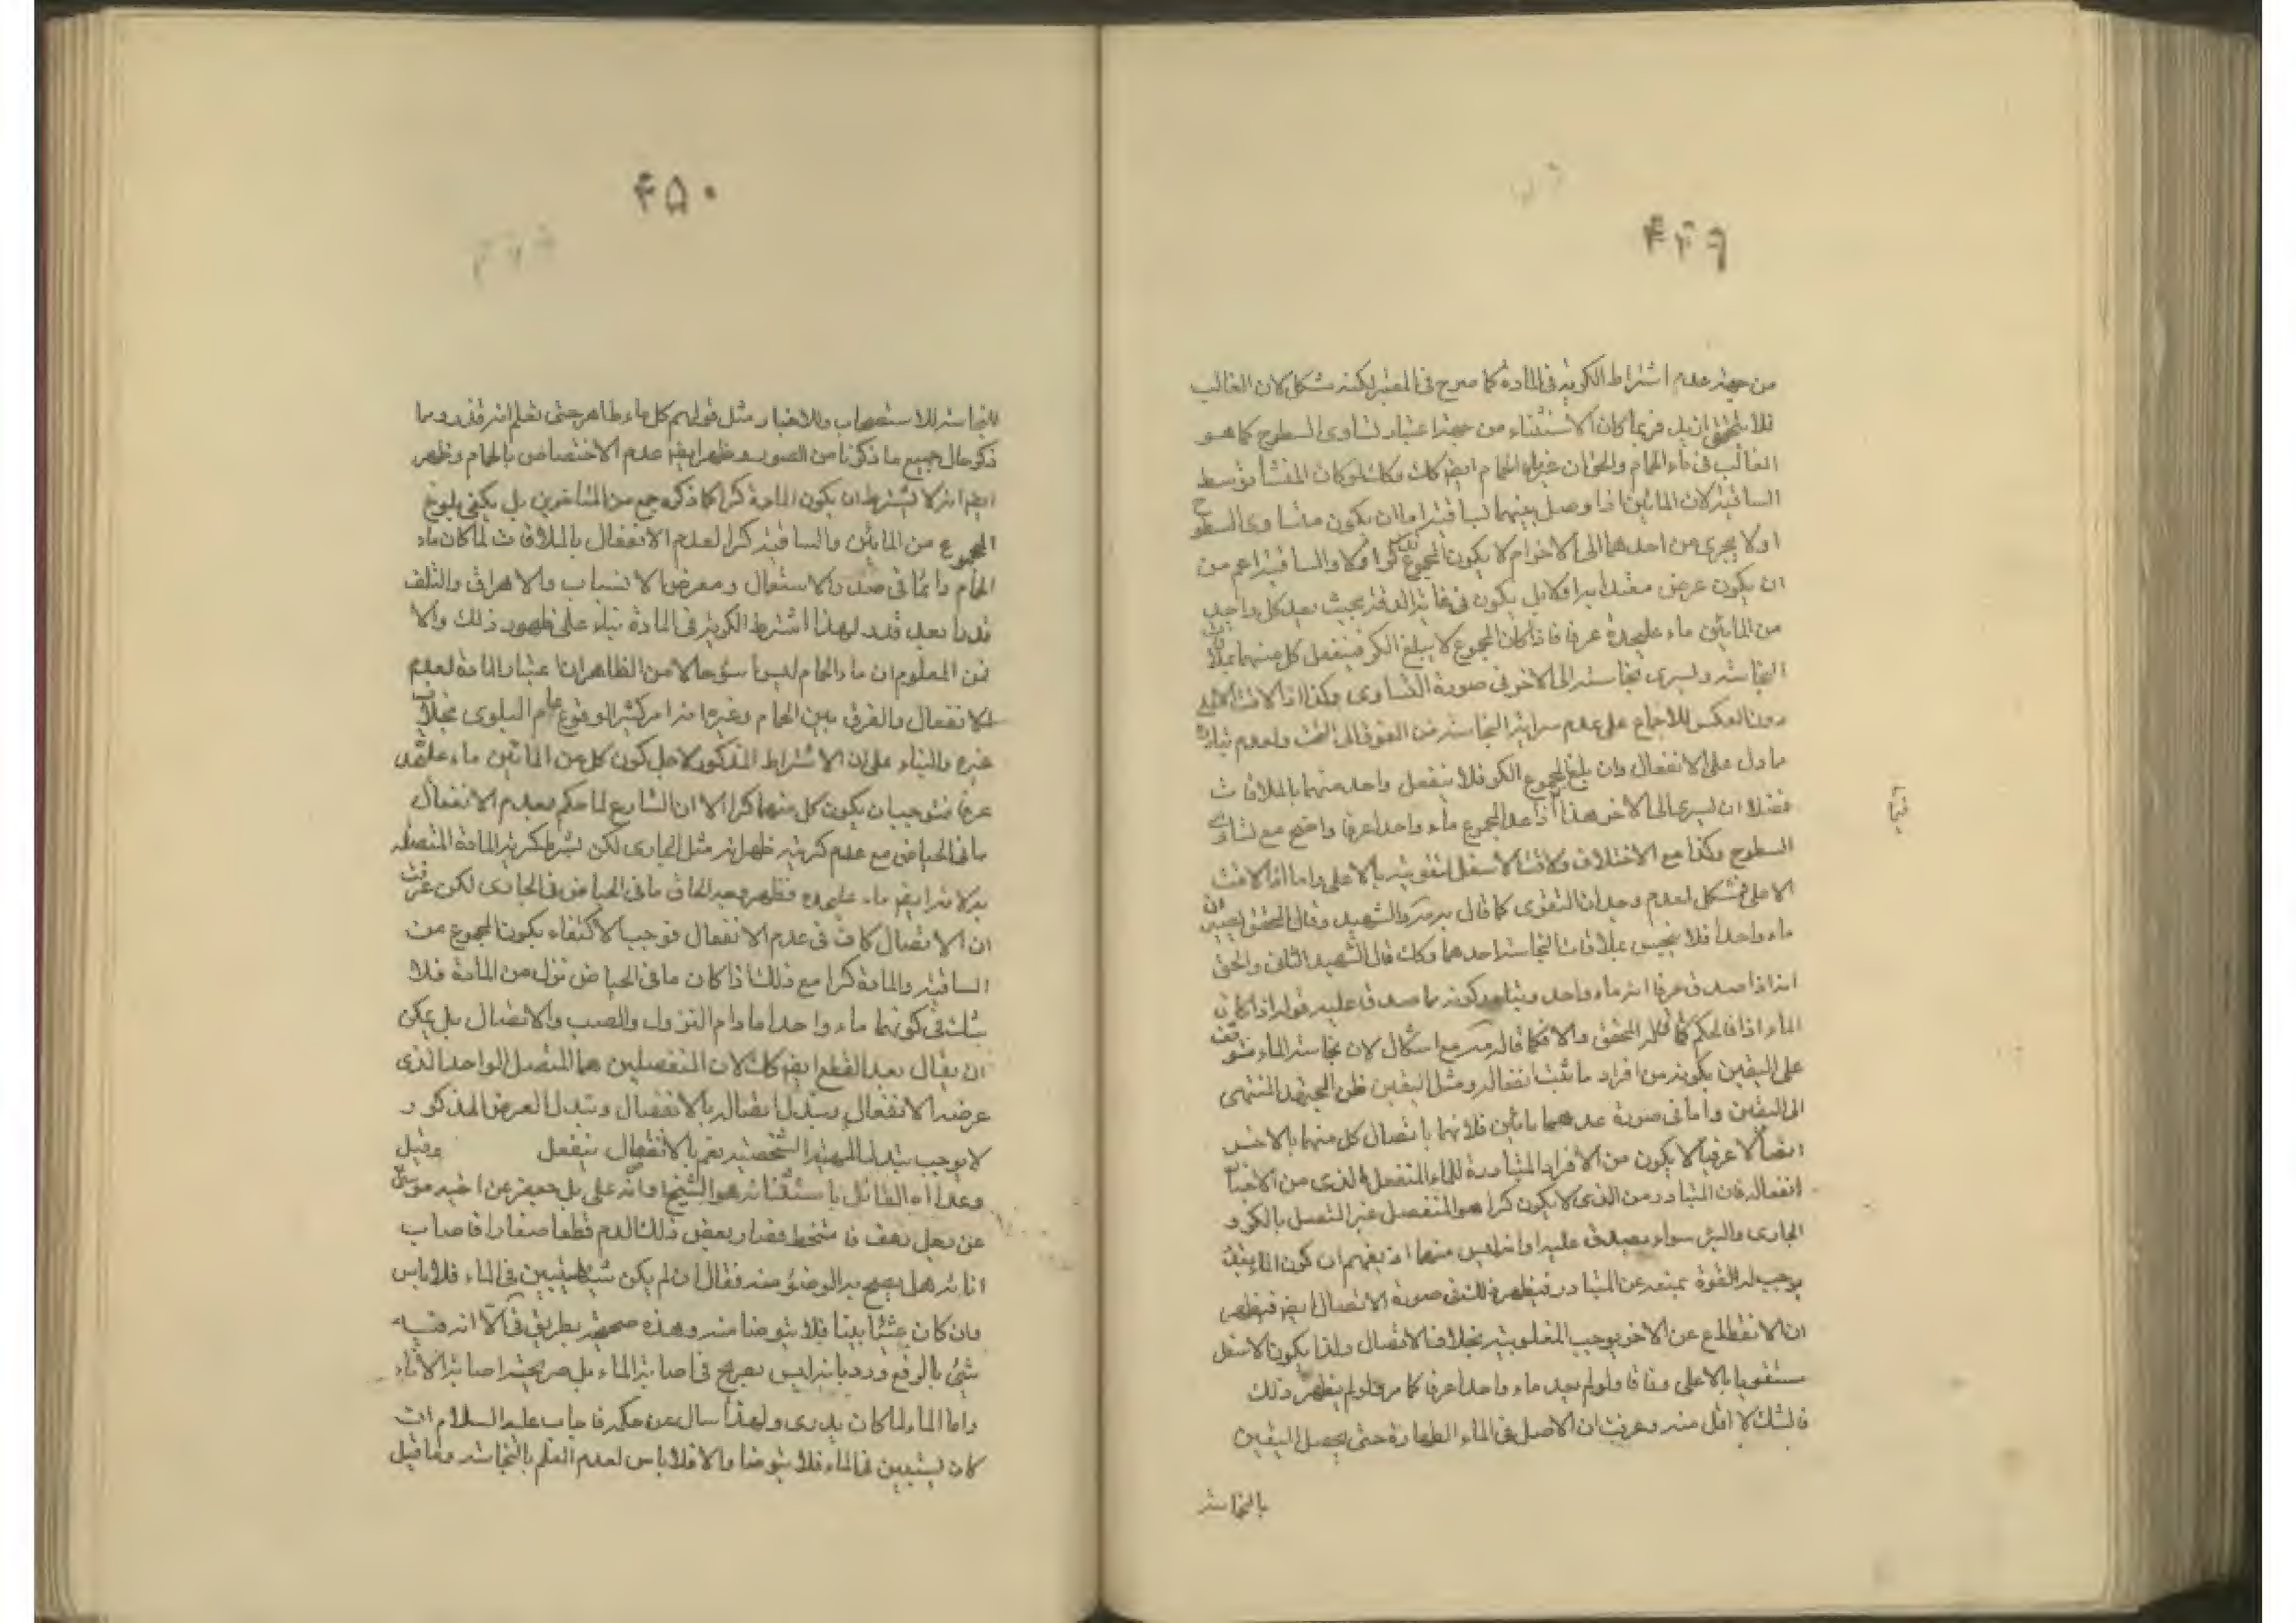 ۴۴۹
من جهة عدم اشتراط الكرية فى المادة كما صرح فى المعتبر لكنه مشكل لان الغالب
فلا بل فربما كان الاستثناء من جهة اعتبار تساوى السطوح كما هو
الغالب فى ماء الحمام والحق ان غير ماء الحمام ايضا كك وكك لو كان المنشأ توسط
الساقية لان المائين اذا وصل بينهما بساقية اما ان يكون متساوى السطوح
اولا يجرى من احدهما الى الاخر ام لا يكون المجموع كرا اولا والساقية اعم من
ان يكون عرض معتدا به اولا بل يكون فى غاية الدقة بحيث يعد كل واحد
من المائين ماء عليحدة عرفا فاذا كان المجموع لا يبلغ الكر فينفعل كل منهما بملاقات
النجاسة ويسرى نجاسته الى الاخر فى صورة التساوى وكذا اذا لاقت الاعلى
دون العكس للاجماع على عدم سراية النجاسة من الفوق الى التحت ولعدم تبادر
ما دل على الانفعال وان بلغ المجموع الكر فلا ينفعل واحد منهما بالملاقات
فضلا ان يسرى الى الاخر هذا اذا عد المجموع ماء واحدا عرفا واضح مع تساوى
السطوح وكذا مع الاختلاف ولاقت الاسفل لتقويته بالاعلى واما اذا لاقت
الاعلى فمشكل لعدم وجدان التقوى كما قال به مركره والشهيد وقال المحقق يصيران
ماء واحدا فلا ينجس بملاقات النجاسة احدهما وكك قال الشهيد الثانى والحق
انه اذا صدق عرفا انه ماء واحد ويتبادر كونه مما صدق عليه قوله اذا كان
الماء اذا فالحكم كما قاله المحقق والا فكما قاله مع اشكال لان نجاسة الماء متوقف
على اليقين بكونه من افراد ما ثبت انفعاله ومثل اليقين ظن المجتهد المنتهى
الى اليقين واما فى صورة عدهما مائين فلانهما باتصال كل منهما بالاخر
اتصالا عرفيا لا يكون من الافراد المتبادرة للماء المنفعل الذى من الاخبار
انفعاله فان المتبادر من الذى لا يكون كرا هو المنفصل غير المتصل بالكر و
الجارى والبئر سواء يصدق عليه او انه ليس منها اذ يفهم ان كون الماء بقية
يوجب له القوة يمنعه عن المتبادر فيظهر ذلك فى صورة الاتصال ايضا فيظهر
ان الانقطاع عن الاخر يوجب المغلوبية بخلاف الاتصال ولذا يكون الاسفل
مستقويا بالاعلى وفاقا ولو لم يعد ماء واحدا عرفا كما مر ولو لم يظهر ذلك
فالشك لا اقل منه وعرفت ان الاصل فى الماء الطهارة حتى يحصل اليقين
بالنجاسة
۴۵۰
بالنجاسة للاستصحاب وللاخبار مثل قولهم كل ماء طاهر حتى تعلم انه قذر ومما
ذكر حال جميع ما ذكرنا من الصور وظهر ايضا عدم الاختصاص بالحمام وظهر
ايضا انه لا يشترط ان يكون المادة كرا كما ذكره جمع من المتأخرين بل يكفى بلوغ
المجموع من المائين والساقية كرا لعدم الانفعال بالملاقات لما كان ماء
الحمام دائما فى صدد الاستعمال ومعرض الانسباب والاهراق والتلف
قدرا بعد قدر لهذا اشترط الكرية فى المادة بناء على ظهور ذلك والا
فمن المعلوم ان ماء الحمام ليس اسوء حالا من الظاهر ان اعتبار المادة لعدم
الانفعال والفرق بين الحمام وغيره انه امر كثير الوقوع عام البلوى بخلاف
غيره والبناء على ان الاشتراط المذكور لاجل كون كل من المائين ماء عليحده
عرفا فتوجب ان يكون كل منهما كرا الا ان الشارع لما حكم بعدم الانفعال
ما فى الحياض مع عدم كريته ظهر انه مثل الجارى لكن بشرط كرية المادة المتصلة
به لانه ايضا ماء عليحده فظهر وجه الحاق ما فى الحياض فى الجارى لكن عرفت
ان الاتصال كاف فى عدم الانفعال فوجب الاكتفاء بكون المجموع من
الساقية والمادة كرا مع ذلك اذا كان ما فى الحياض نزل من المادة فلا
شك فى كونهما ماء واحدا ما دام النزول والصب والاتصال بل يمكن
ان يقال بعد القطع ايضا كك لان المنفصلين هما المتصل الواحد الذى
عرضه الانفعال وتبدل اتصاله بالانفصال وتبدل العرض المذكور
لا يوجب تبدل المهية الشخصية نعم بالانفصال ينفعل وقيل
وعدم اه القائل باستثنائه هو الشيخ لرواية على بل جعفر عن اخيه موسى
عن رجل رعف فامتخط فصار بعض ذلك الدم قطعا صغارا فاصاب
انائه هل يصح به الوضوء منه فقال ان لم يكن شيئا يستبين فى الماء فلا باس
وان كان شيئا بينا فلا يتوضا منه وهذه صحيحة بطريق فى الا انه فيه
شئ بالرفع ورد بانه ليس بصريح فى اصابة الماء بل صريحه اصابة الاناء
واما الماء لما كان يدرى ولهذا سال عن حكمه فاجاب عليه السلام ان
كان يستبين فى الماء فلا يتوضا والا فلا باس لعدم العلم بالنجاسة وما قيل